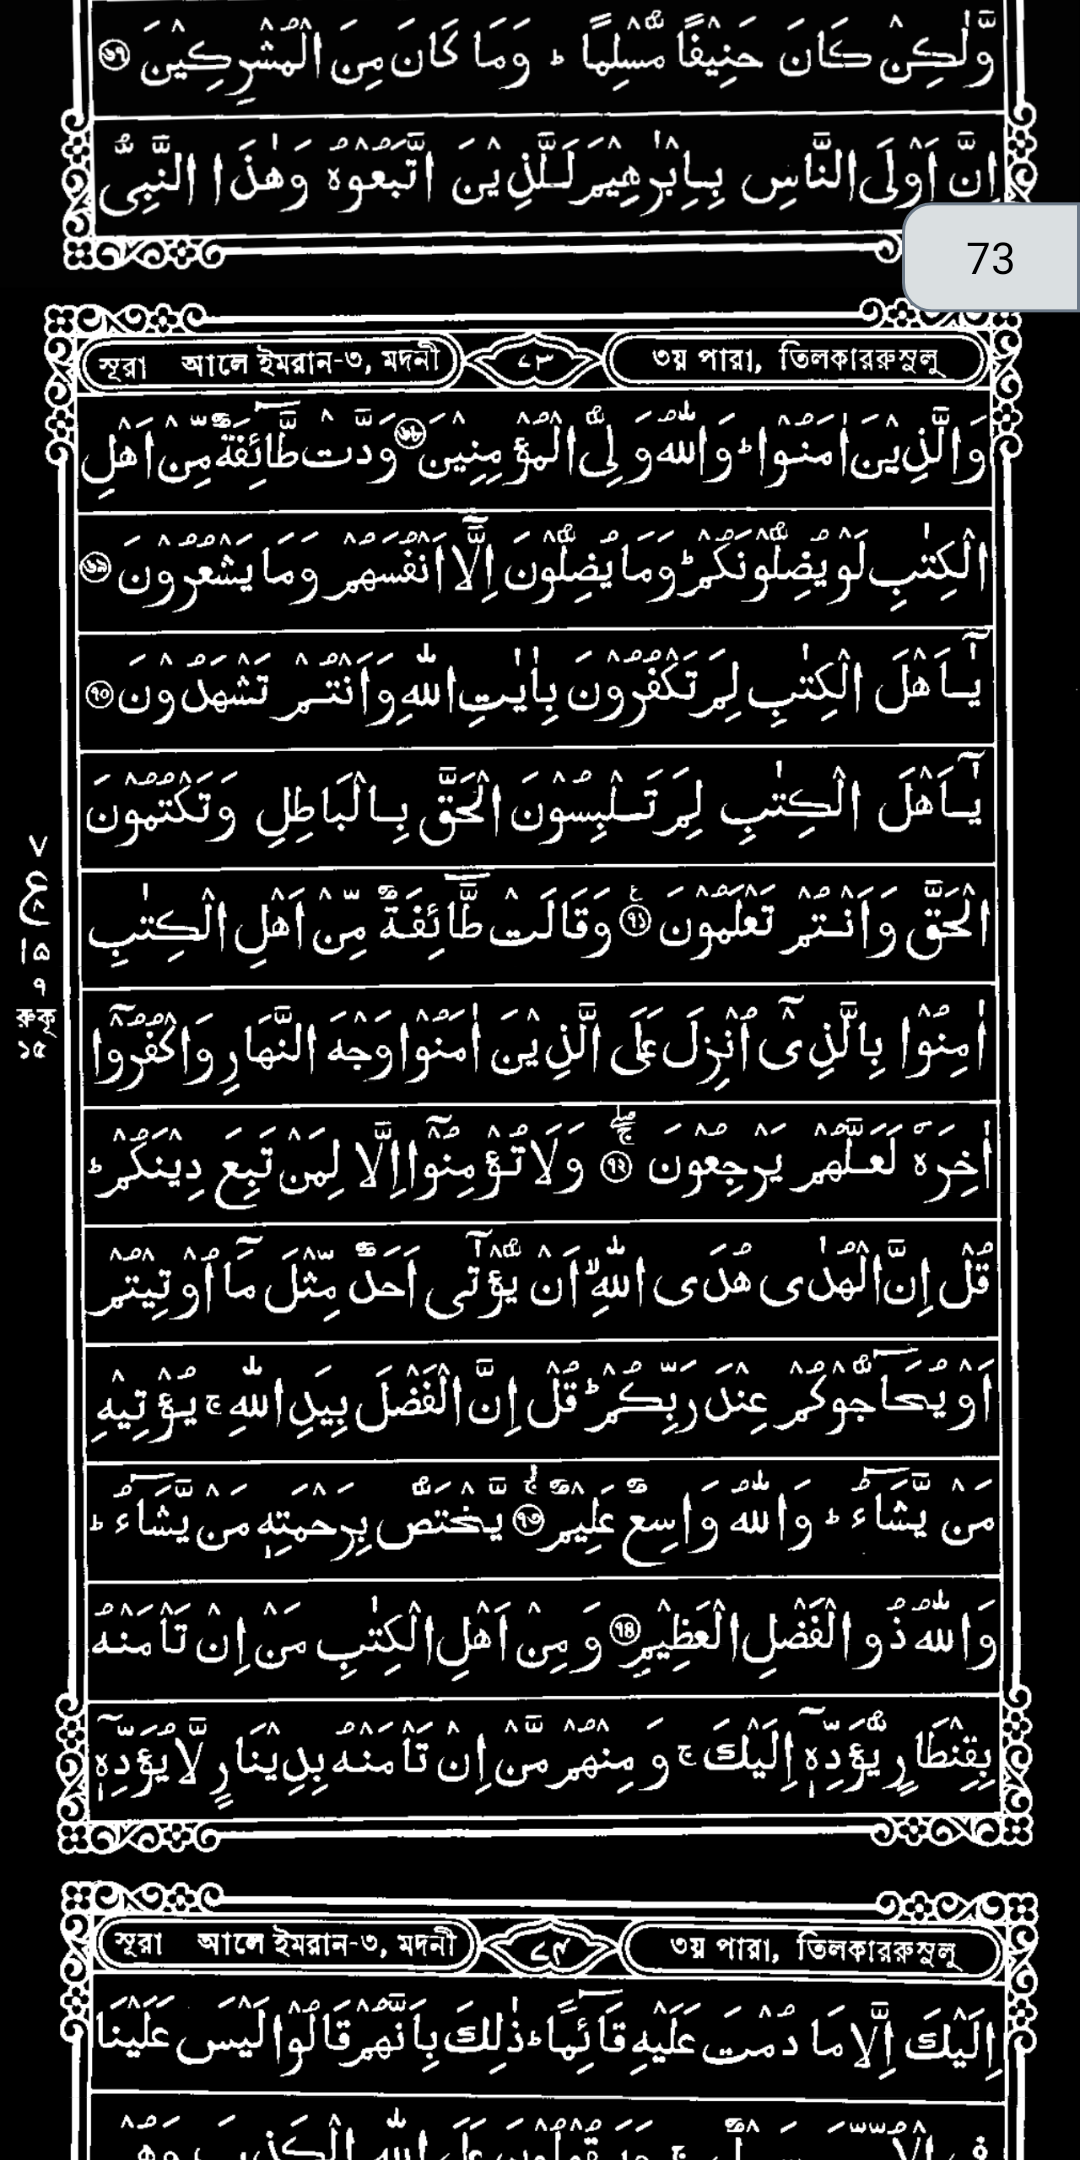 وَّلٰكِنْ كَانَ حَنِيْفًا مُّسْلِمًا ؕ وَمَا كَانَ مِنَ الْمُشْرِكِيْنَ ৬৭
اِنَّ اَوْلَى النَّاسِ بِاِبْرٰهِيْمَ لَلَّذِيْنَ اتَّبَعُوْهُ وَهٰذَا النَّبِىُّ
73
সূরা আলে ইমরান-৩, মদনী
৩য় পারা, তিলকাররুসুলু
وَالَّذِيْنَ اٰمَنُوْا ؕ وَاللّٰهُ وَلِىُّ الْمُؤْمِنِيْنَ ৬৮ وَدَّتْ طَّآئِفَةٌ مِّنْ اَهْلِ
الْكِتٰبِ لَوْ يُضِلُّوْنَكُمْ ؕ وَمَا يُضِلُّوْنَ اِلَّاۤ اَنْفُسَهُمْ وَمَا يَشْعُرُوْنَ ৬৯
يٰۤاَهْلَ الْكِتٰبِ لِمَ تَكْفُرُوْنَ بِاٰيٰتِ اللّٰهِ وَاَنْتُمْ تَشْهَدُوْنَ ৭০
يٰۤاَهْلَ الْكِتٰبِ لِمَ تَلْبِسُوْنَ الْحَقَّ بِالْبَاطِلِ وَتَكْتُمُوْنَ
الْحَقَّ وَاَنْتُمْ تَعْلَمُوْنَ ৭১ وَقَالَتْ طَّآئِفَةٌ مِّنْ اَهْلِ الْكِتٰبِ
রুকু
১৫
اٰمِنُوْا بِالَّذِىْۤ اُنْزِلَ عَلَى الَّذِيْنَ اٰمَنُوْا وَجْهَ النَّهَارِ وَاكْفُرُوْۤا
اٰخِرَهٗ لَعَلَّهُمْ يَرْجِعُوْنَ ৭২ وَلَا تُؤْمِنُوْۤا اِلَّا لِمَنْ تَبِعَ دِيْنَكُمْ ؕ
قُلْ اِنَّ الْهُدٰى هُدَى اللّٰهِ ۙ اَنْ يُّؤْتٰىۤ اَحَدٌ مِّثْلَ مَاۤ اُوْتِيْتُمْ
اَوْ يُحَآجُّوْكُمْ عِنْدَ رَبِّكُمْ ؕ قُلْ اِنَّ الْفَضْلَ بِيَدِ اللّٰهِ ۚ يُؤْتِيْهِ
مَنْ يَّشَآءُ ؕ وَاللّٰهُ وَاسِعٌ عَلِيْمٌ ৭৩ يَّخْتَصُّ بِرَحْمَتِهٖ مَنْ يَّشَآءُ ؕ
وَاللّٰهُ ذُو الْفَضْلِ الْعَظِيْمِ ৭৪ وَمِنْ اَهْلِ الْكِتٰبِ مَنْ اِنْ تَاْمَنْهُ
بِقِنْطَارٍ يُّؤَدِّهٖۤ اِلَيْكَ ۚ وَمِنْهُمْ مَّنْ اِنْ تَاْمَنْهُ بِدِيْنَارٍ لَّا يُؤَدِّهٖۤ
সূরা আলে ইমরান-৩, মদনী
৩য় পারা, তিলকাররুসুলু
اِلَيْكَ اِلَّا مَا دُمْتَ عَلَيْهِ قَآئِمًا ؕ ذٰلِكَ بِاَنَّهُمْ قَالُوْا لَيْسَ عَلَيْنَا